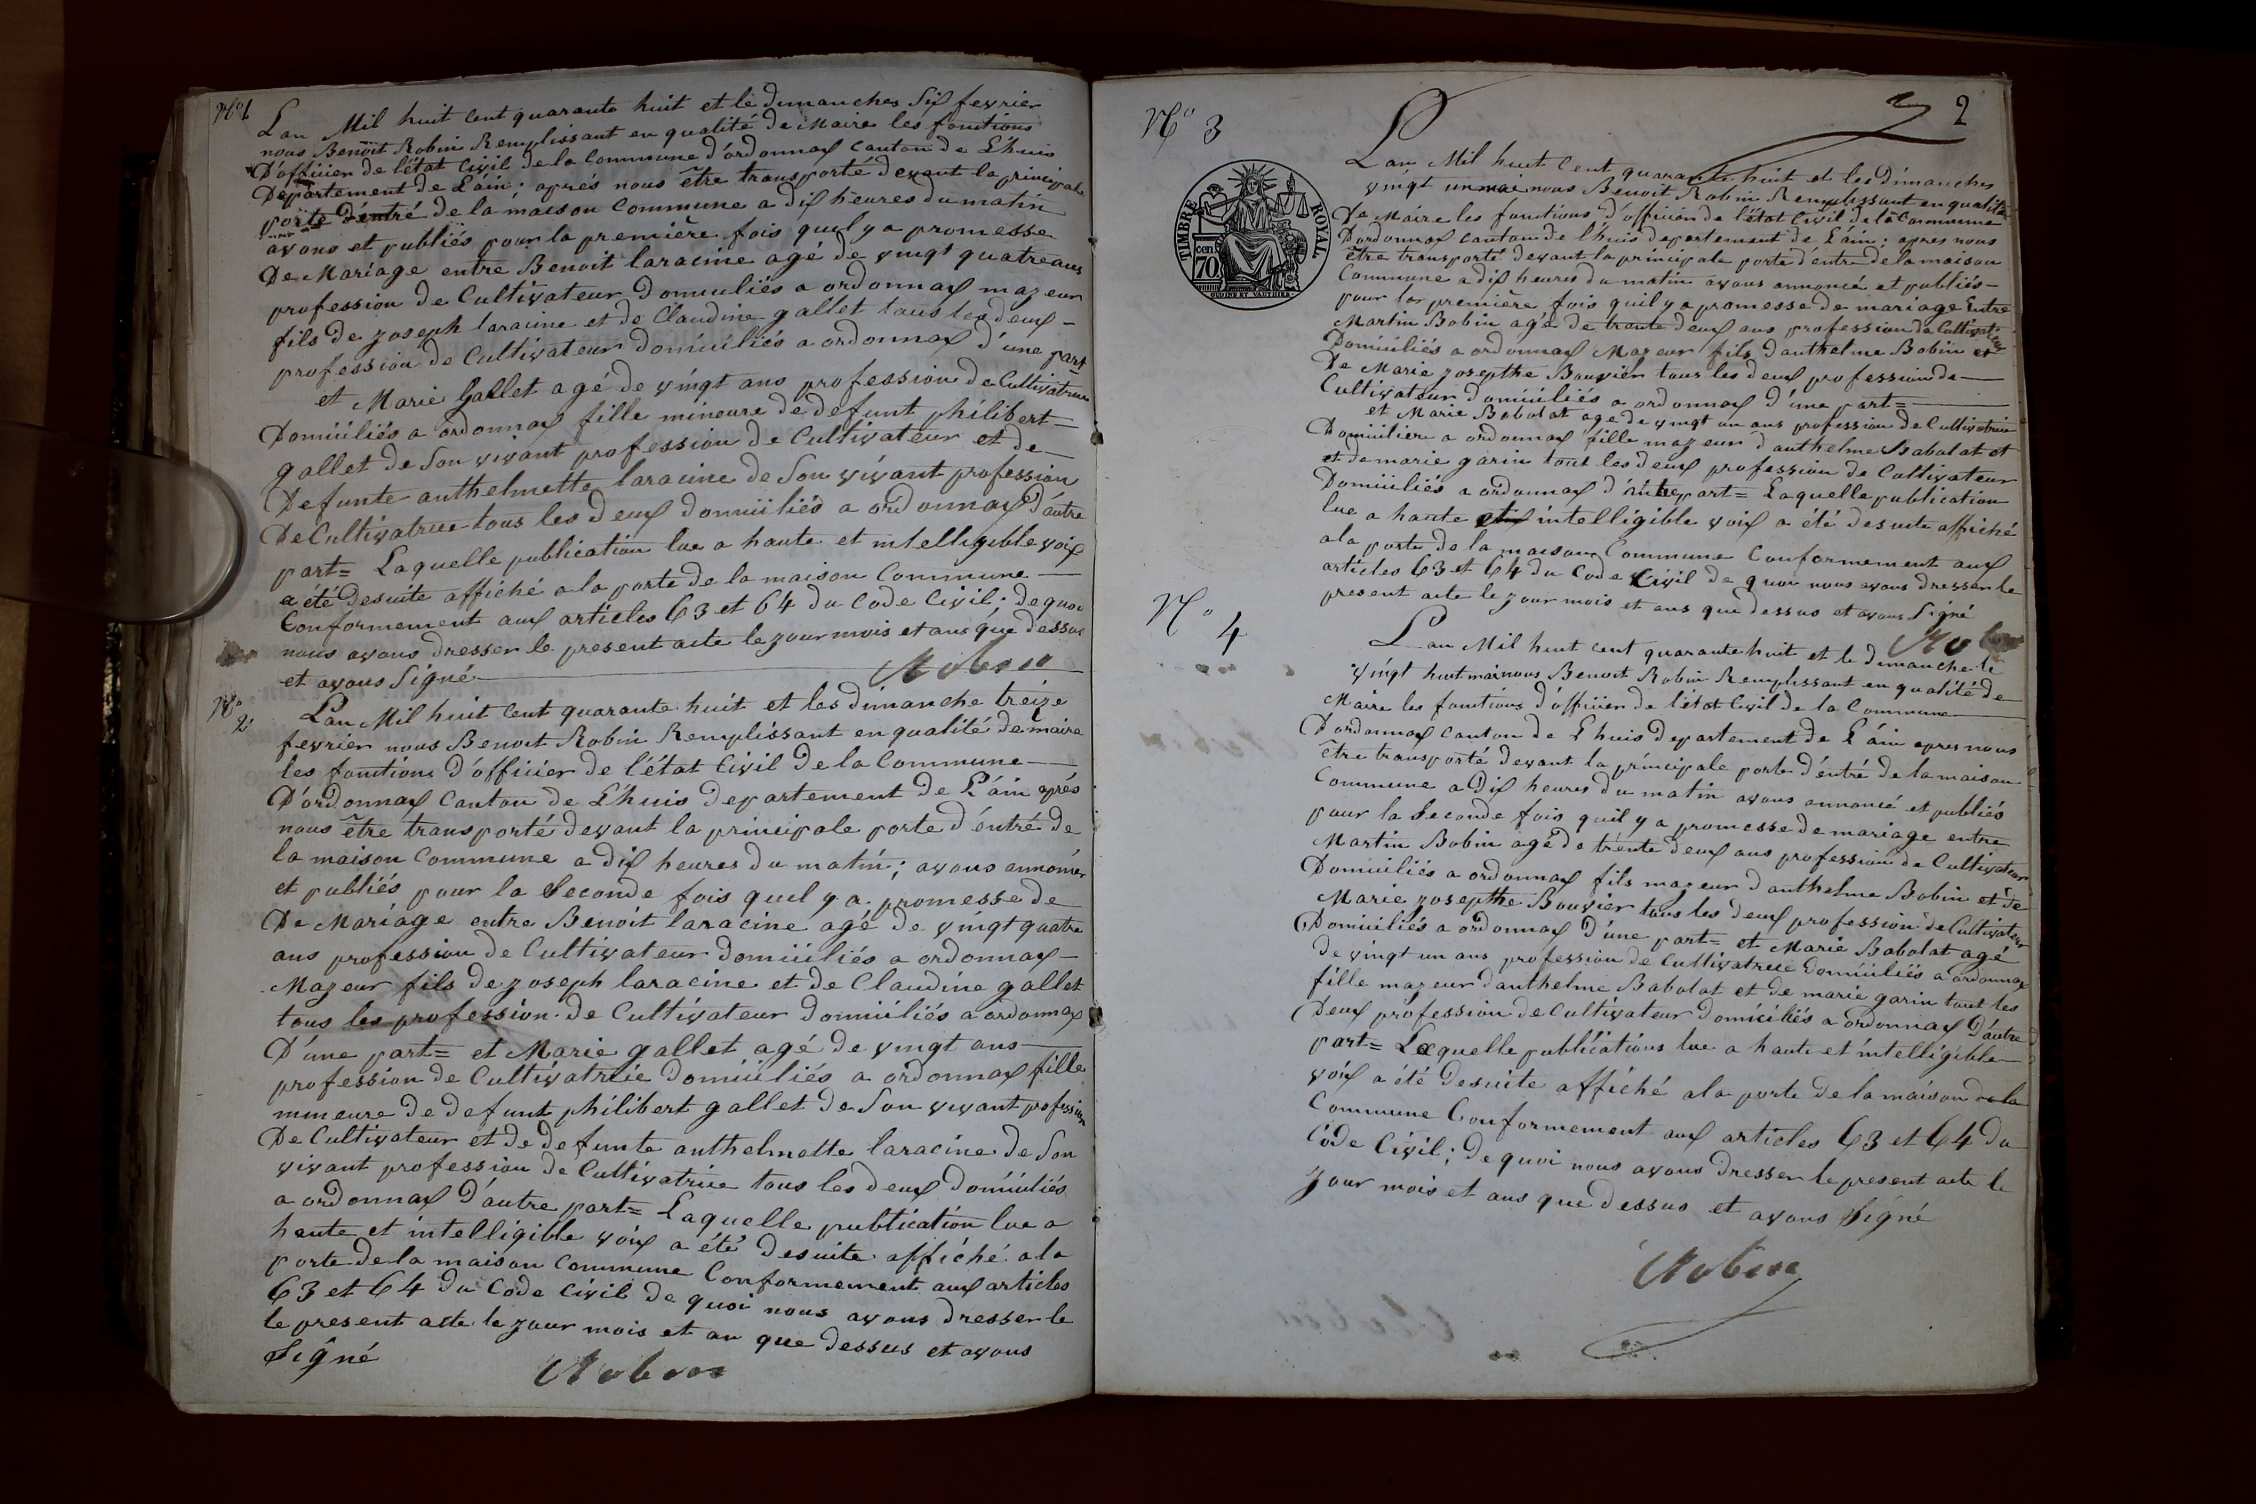 N° 1
Lan Mil huit cent quarante huit et le dimanches Six fevrier
nous Benoit Robin Remplissant en qualité de Maire les fonctions
D'officier de l'état Civil de la Commune d'ordonnax canton de L'huis
Departement de L'ain; aprés nous être transporté devant la principale
porte d'éntré de la maison Commune a dix heures du matin
avons et publiés pour la première fois quil y a promesse
De Mariage entre Benoit laracine agé de vingt quatre ans
profession de Cultivateur Domiciliés a ordonnax mazeur
fils de zoseph laracine et de Claudine gallet tous les deux -
profession de Cultivateur domiciliés a ordonnax d'une part
et Marie Gallet agé de vingt ans profession de Cultivatrice
Domiciliés a ordonnax fille mineure de defunt philibert =
gallet de Son vivant profession de Cultivateur et de
Defunte anthelmette laracine de Son vivant profession
De Cultivatrice tous les deux domiciliés a ordonnax D'autre
part = Laquelle publication lue a haute et intelligible voix
a été desuite affiché a la porte de la maison Commune
Conformement aux articles 63 et 64 du Code Civil; de quoi
nous avons dresser le present acte le zour mois et ans que dessus
et avons Signé
Robin
N° 2
Lan Mil huit Cent quarante huit et les dimanche treize
fevrier nous Benoit Robin Remplissant en qualité de maire
les fonctions d'officier de l'état Civil de la Commune
D'ordonnax Canton de L'huis departement de L'ain aprés
nous être transporté devant la principale porte d'éntré de
la maison Commune a dix heures du matin; avons annoncer
et publiés pour la Seconde fois quil y a promesse de
De Mariage entre Benoit laracine agé de vingt quatre
ans profession de Cultivateur domiciliés a ordonnax -
Mazeur fils de zoseph laracine et de Claudine gallet
tous les profession de Cultivateur domiciliés a ordonnax
D'une part = et Marie gallet agé de vingt ans
profession de Cultivatrice domiciliés a ordonnax fille
mineure de defunt philibert gallet de Son vivant profession
De Cultivateur et de defunte anthelmette laracine de Son
vivant profession de Cultivatrice tous les deux domiciliés
a ordonnax D'autre part = Laquelle publication lue a
haute et intelligible voix a été desuite affiché a la
porte de la maison Commune Conformement aux articles
63 et 64 du Code Civil de quoi nous avons dresser le
le present acte le zour mois et an que dessus et avons
Signé
Robin
2
N° 3
TIMBRE ROYAL
cen. 70
Lan Mil huit Cent quarante huit et les dimanches
vingt un mai nous Benoit Robin Remplissant en qualité
De Maire les fonctions d'officier de l'état Civil de la Commune
Dordonnax canton de l'huis departement de L'ain; apres nous
être transporté devant la principale porte d'éntré de la maison
Commune a dix heures du matin avons annoncé et publiés -
pour la première fois quil y a promesse de mariage Entre
Martin Bobin agé de trante deux ans profession de Cultivateur
Domiciliés a ordonnax Mazeur fils danthelme Bobin et
De Marie zosepthe Bouvier tous les deux profession de
Cultivateur domiciliés a ordonnax d'une part =
et Marie Babolat agé de vingt un ans profession de Cultivatrice
Domiciliere a ordonnax fille mazeur d'anthelme Babolat et
et de marie garin tout les deux profession de Cultivateur
Domiciliés a ordonnax d'autre part = Laquelle publication
lue a haute et intelligible voix a été desuite affiché
a la porte de la maison Commune Conformement aux
articles 63 et 64 du Code Civil de quoi nous avons dresser le
present acte le zour mois et ans que dessus et avons Signé
Robin
N° 4
Lan Mil huit cent quarante huit et le dimanche le
vingt huit mai nous Benoit Robin Remplissant en qualité de
Maire les fonctions d'officier de l'état Civil de la Commune
Dordonnax canton de L'huis departement de L'ain apres nous
être transporté devant la principale porte d'éntré de la maison
Commune a Dix heures du matin avons annoncé et publiés
pour la Seconde fois quil y a promesse de mariage entre
Martin Bobin agé de trente deux ans profession de Cultivateur
Domiciliés a ordonnax fils mazeur danthelme Bobin et de
Marie zosepthe Bouvier tous les deux profession de Cultivateur
Domiciliés a ordonnax D'une part = et Marie Babolat agé
de vingt un ans profession de Cultivatrice domiciliés a ordonnax
fille mazeur danthelme Babolat et de marie garin tout les
Deux profession de Cultivateur domiciliés a ordonnax D'autre
part = Laquelle publications lue a haute et intelligible
voix a été desuite affiché a la porte de la maison de la
Commune Conformement aux articles 63 et 64 du
Code Civil; de quoi nous avons dresser le present acte le
Jour mois et ans que dessus et avons Signé
Robin